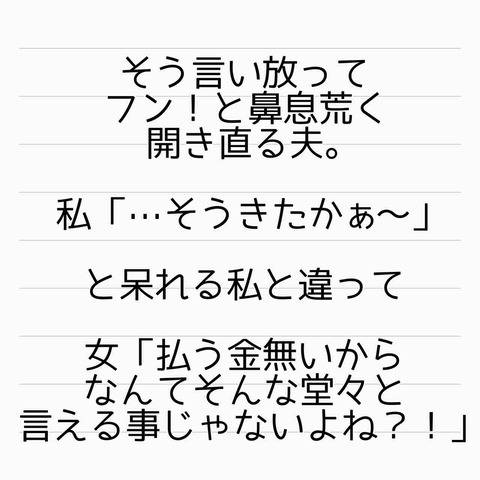 そう言い放って
フン！と鼻息荒く
開き直る夫。
私「…そうきたかぁ〜」
と呆れる私と違って
女「払う金無いから
なんてそんな堂々と
言える事じゃないよね？！」